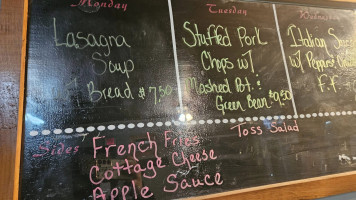 Monday
Lasagna
Soup
Bread $7.50
Tuesday
Stuffed Pork
Chops w/
Mashed Pot. &
Green Bean $9.50
Wednesday
Italian
w/ Peppers
F.F.
Sides
French Fries
Toss Salad
Cottage Cheese
Apple Sauce